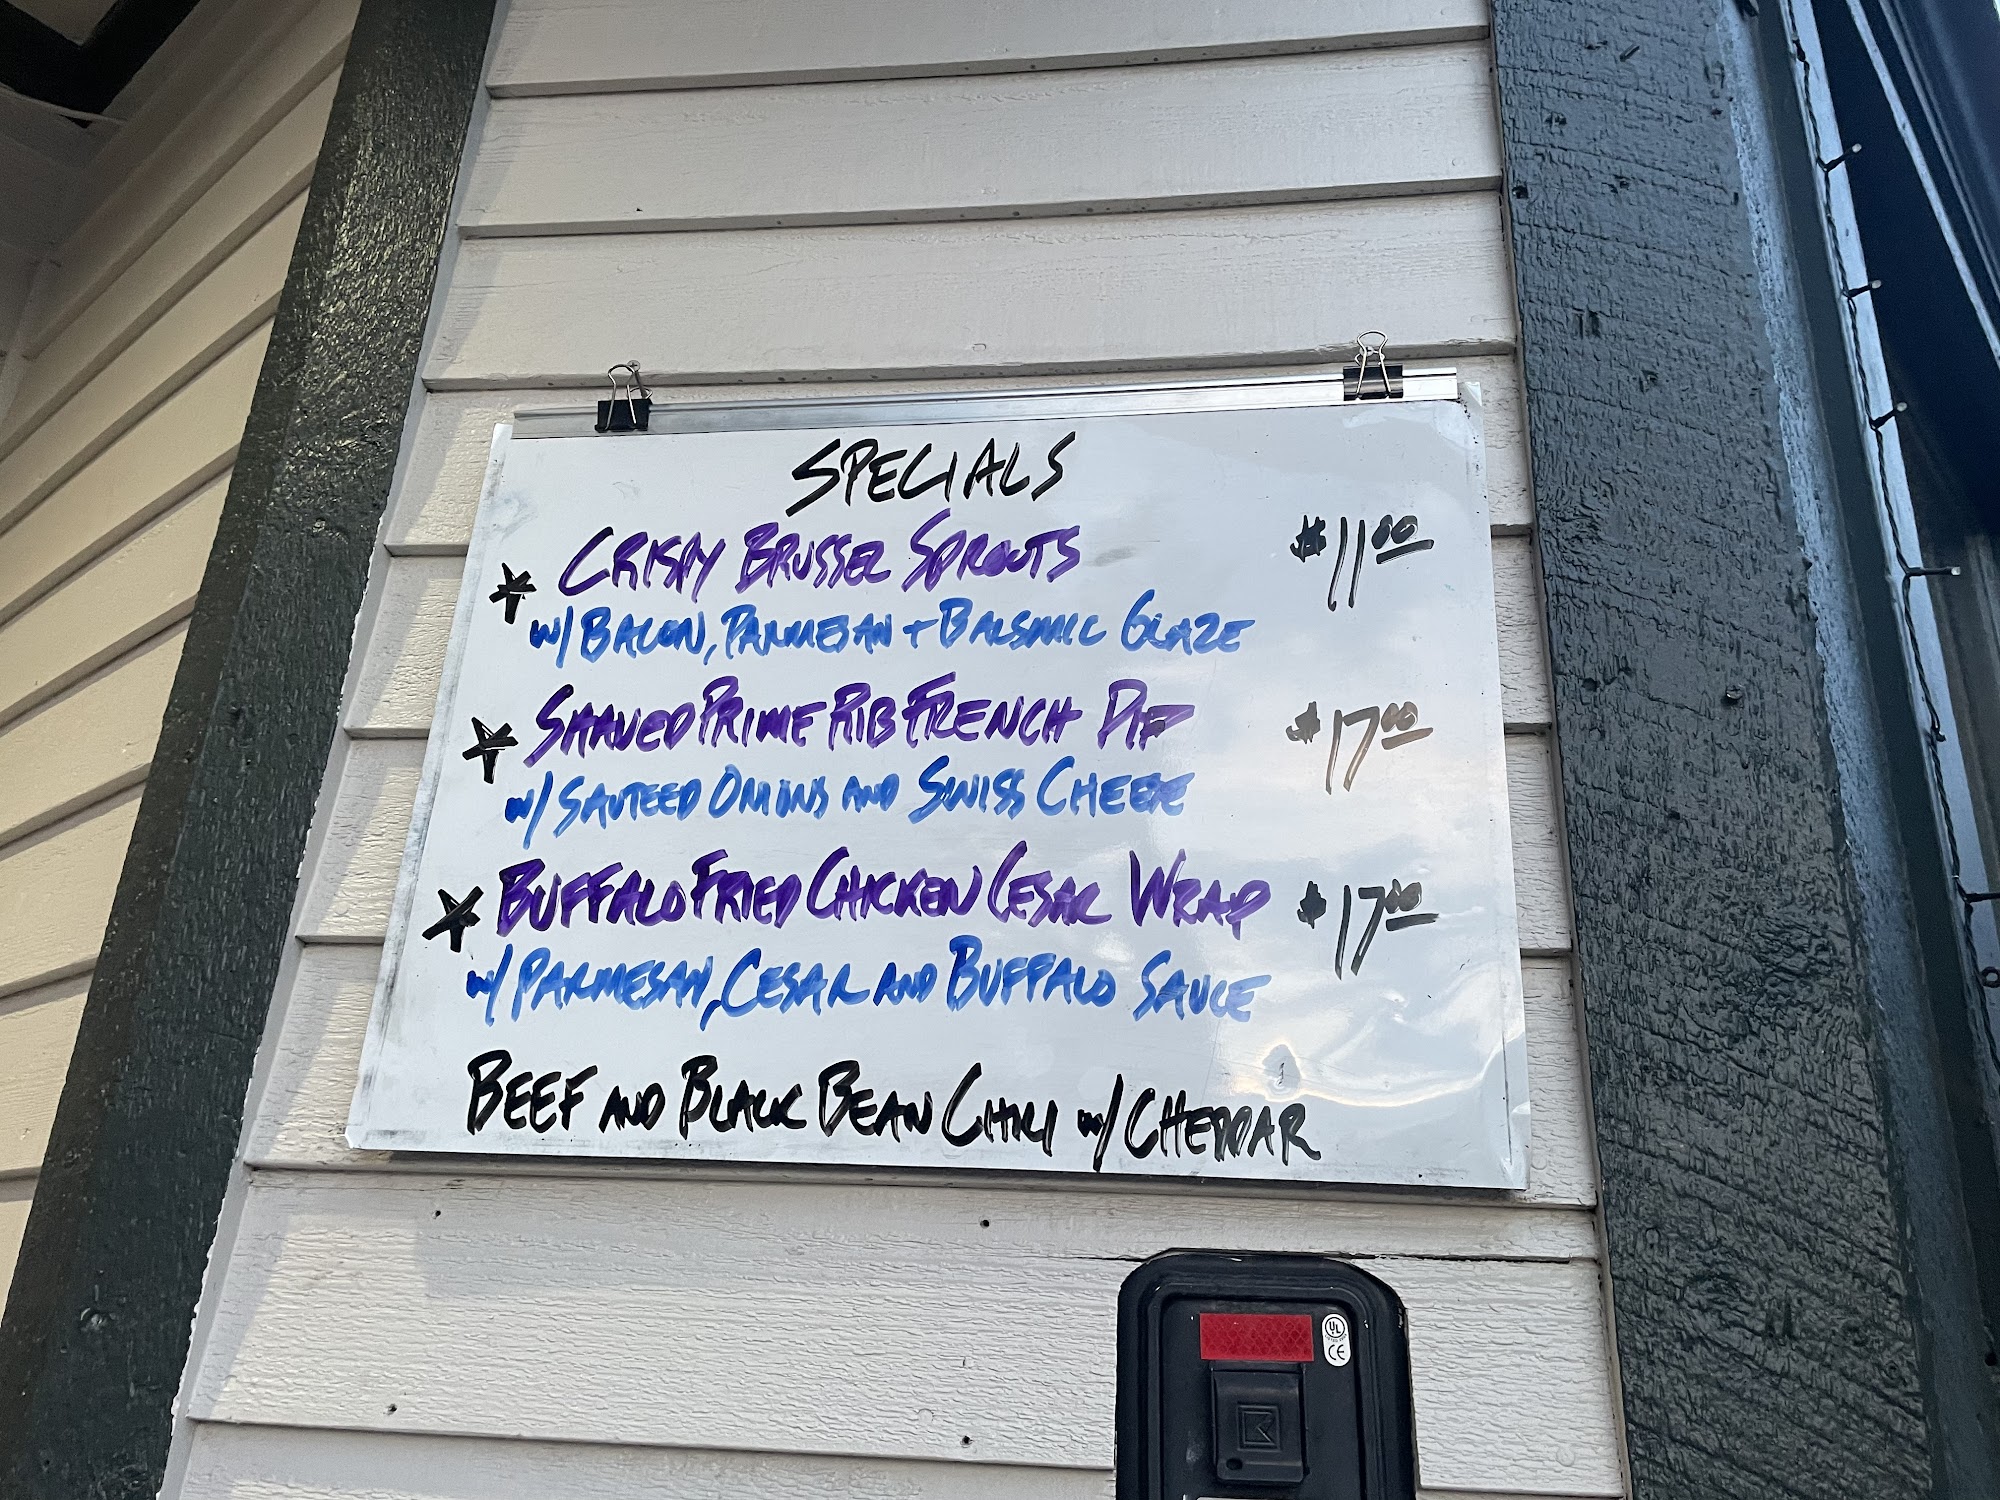 SPECIALS
CRISPY BRUSSEL SPROUTS $11.00
w/ BACON, PARMESAN + BALSMIC GLAZE
SHAVED PRIME RIB FRENCH DIP $17.00
w/ SAUTEED ONIONS AND SWISS CHEESE
BUFFALO FRIED CHICKEN CESAR WRAP $17.00
w/ PARMESAN, CESAR AND BUFFALO SAUCE
BEEF AND BLACK BEAN CHILI w/ CHEDDAR
UL
CE